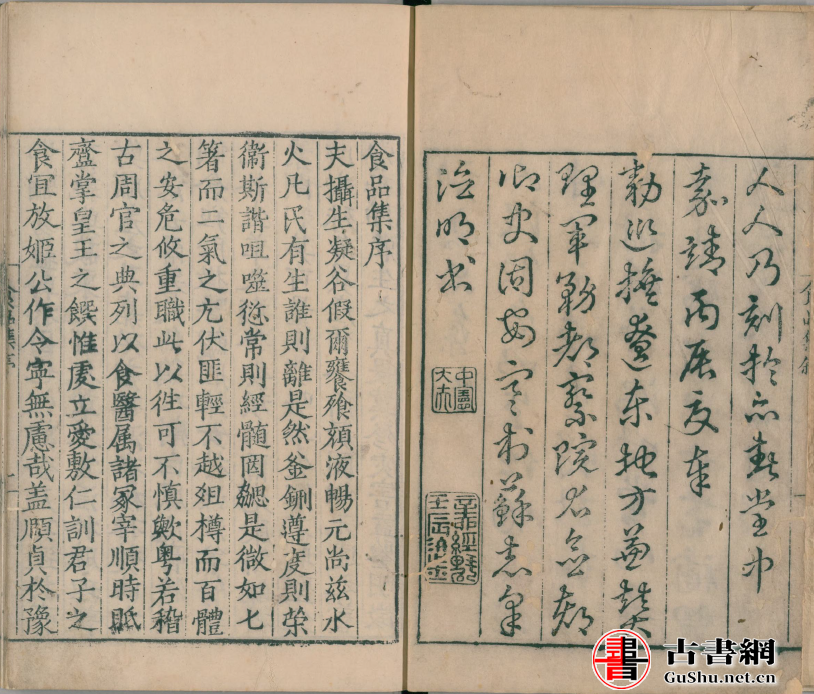 人人乃刻於堂中
嘉靖丙辰夏奉
勑巡撫遼東地方兼贊
理軍務都察院右僉都
御史固安寒村蘇志皋
洽明書
中憲大夫
食品集序
夫攝生凝谷假爾饔飧液暢元尚茲水
火凡民有生誰則離是然釜鉶遵度則榮
衞斯諧咀噬愆常則經髓罔勰是微如七
箸而二氣之亢伏匪輕不越俎樽而百體
之安危攸重職此以徃可不慎歟粤若稽
古周官之典列以食醫属諸冢宰順時眡
齍掌皇王之饌惟虔立愛敷仁訓君子之
食宜放姬公作令寕無慮哉盖頤貞於豫
食品集序
書
古書網
GuShu.net.cn